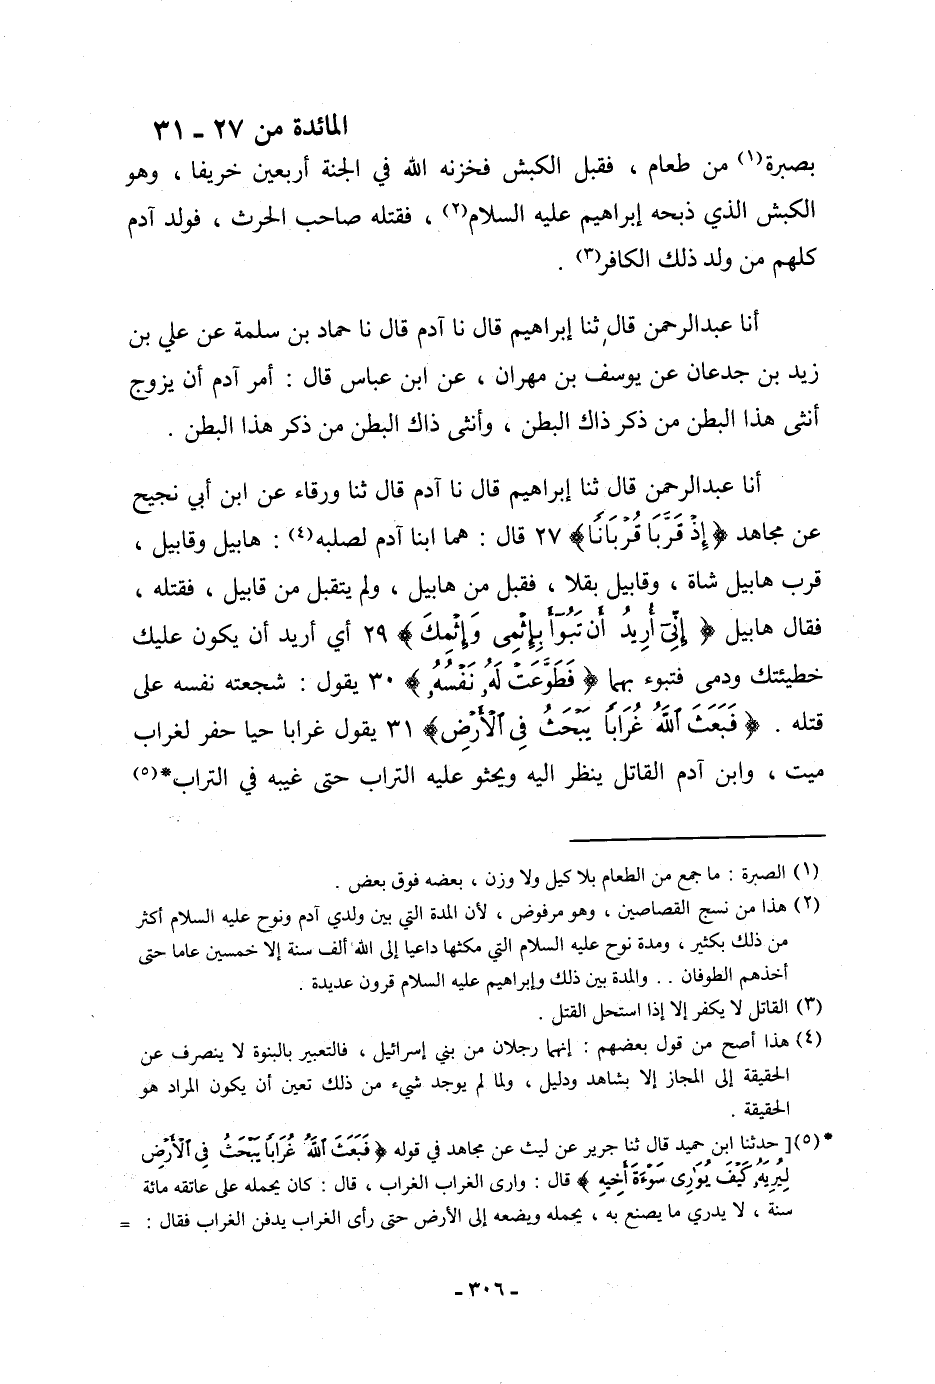 المائدة من ٢٧ ـ ٣١
بصبرة(١) من طعام ، فقبل الكبش فخزنه الله في الجنة أربعين خريفا ، وهو
الكبش الذي ذبحه إبراهيم عليه السلام(٢) ، فقتله صاحب الحرث ، فولد آدم
كلهم من ولد ذلك الكافر(٣) .
أنا عبدالرحمن قال ثنا إبراهيم قال نا آدم قال نا حماد بن سلمة عن علي بن
زيد بن جدعان عن يوسف بن مهران ، عن ابن عباس قال : أمر آدم أن يزوج
أنثى هذا البطن من ذكر ذاك البطن ، وأنثى ذاك البطن من ذكر هذا البطن .
أنا عبدالرحمن قال ثنا إبراهيم قال نا آدم قال ثنا ورقاء عن ابن أبي نجيح
عن مجاهد ﴿إِذْ قَرَّبَا قُرْبَانًا﴾ ٢٧ قال : هما ابنا آدم لصلبه(٤) : هابيل وقابيل ،
قرب هابيل شاة ، وقابيل بقلا ، فقبل من هابيل ، ولم يتقبل من قابيل ، فقتله ،
فقال هابيل ﴿ إِنِّىٓ أُرِيدُ أَن تَبُوٓأَ بِإِثْمِى وَإِثْمِكَ ﴾ ٢٩ أي أريد أن يكون عليك
خطيئتك ودمى فتبوء بهما ﴿ فَطَوَّعَتْ لَهُۥ نَفْسُهُۥ ﴾ ٣٠ يقول : شجعته نفسه على
قتله . ﴿ فَبَعَثَ ٱللَّهُ غُرَابًا يَبْحَثُ فِى ٱلْأَرْضِ﴾ ٣١ يقول غرابا حيا حفر لغراب
ميت ، وابن آدم القاتل ينظر اليه ويحثو عليه التراب حتى غيبه في التراب*(٥)
(١) الصبرة : ما جمع من الطعام بلا كيل ولا وزن ، بعضه فوق بعض .
(٢) هذا من نسج القصاصين ، وهو مرفوض ، لأن المدة التي بين ولدي آدم ونوح عليه السلام أكثر
من ذلك بكثير ، ومدة نوح عليه السلام التي مكثها داعيا إلى الله ألف سنة إلا خمسين عاما حتى
أخذهم الطوفان . . والمدة بين ذلك وإبراهيم عليه السلام قرون عديدة .
(٣) القاتل لا يكفر إلا إذا استحل القتل .
(٤) هذا أصح من قول بعضهم : إنهما رجلان من بني إسرائيل ، فالتعبير بالبنوة لا ينصرف عن
الحقيقة إلى المجاز إلا بشاهد ودليل ، ولما لم يوجد شيء من ذلك تعين أن يكون المراد هو
الحقيقة .
*(٥)[ حدثنا ابن حميد قال ثنا جرير عن ليث عن مجاهد في قوله ﴿ فَبَعَثَ ٱللَّهُ غُرَابًا يَبْحَثُ فِى ٱلْأَرْضِ
لِيُرِيَهُۥ كَيْفَ يُوَٰرِى سَوْءَةَ أَخِيهِ ﴾ قال : وارى الغراب الغراب ، قال : كان يحمله على عاتقه مائة
سنة ، لا يدري ما يصنع به ، يحمله ويضعه إلى الأرض حتى رأى الغراب يدفن الغراب فقال : =
ـ ٣٠٦ ـ